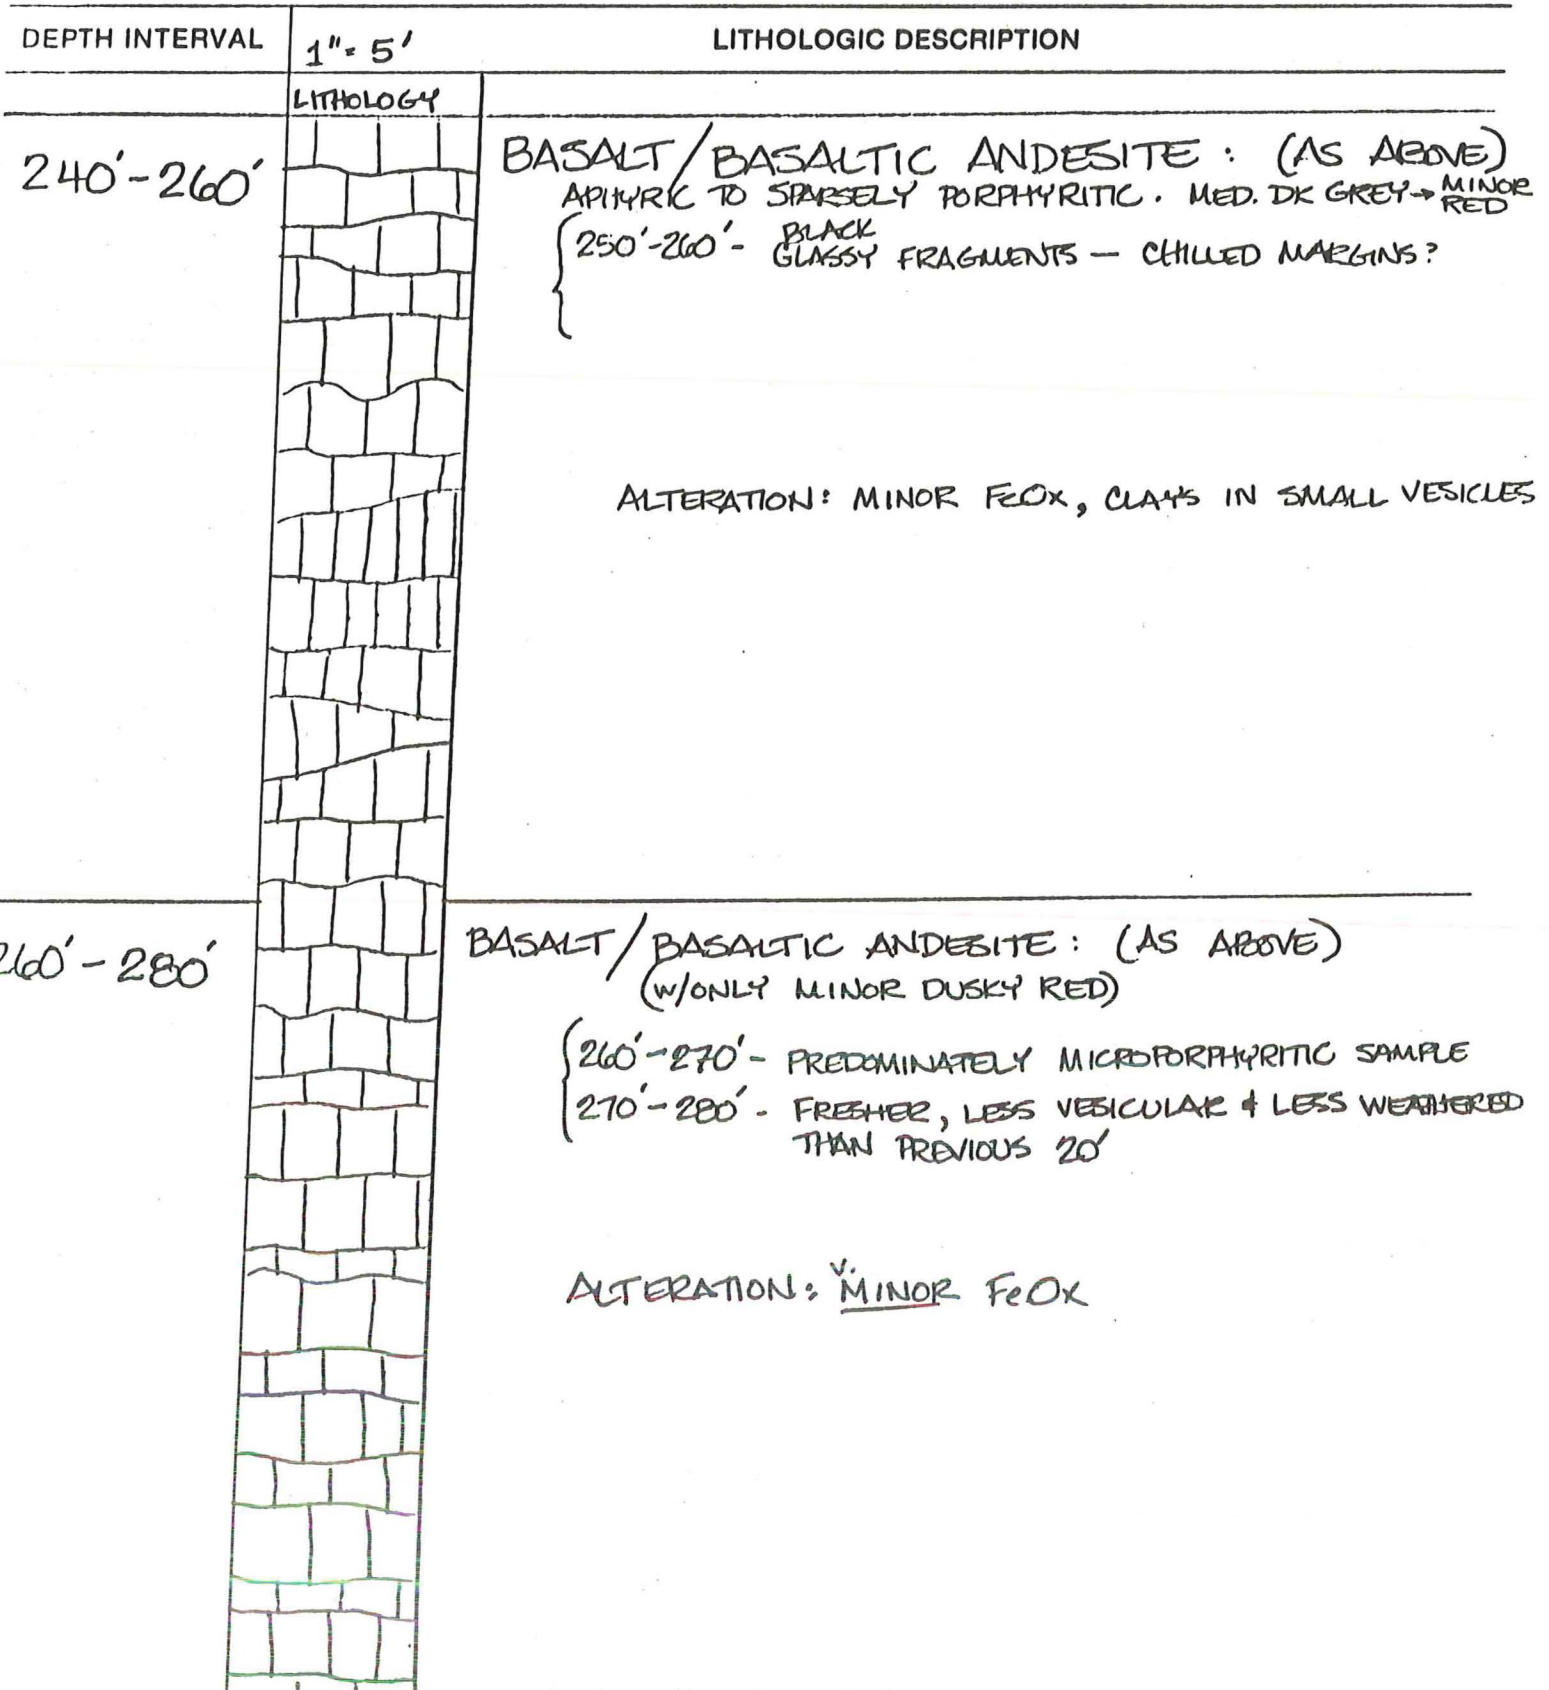 DEPTH INTERVAL 1"= 5' LITHOLOGIC DESCRIPTION
LITHOLOGY
240'-260' BASALT/BASALTIC ANDESITE: (AS ABOVE)
APHYRIC TO SPARSELY PORPHYRITIC. MED. DK GREY → MINOR RED
250'-260' - BLACK
GLASSY FRAGMENTS — CHILLED MARGINS?
ALTERATION: MINOR FeOx, CLAYS IN SMALL VESICLES
260'-280' BASALT/BASALTIC ANDESITE: (AS ABOVE)
(W/ONLY MINOR DUSKY RED)
260'-270' - PREDOMINATELY MICROPORPHYRITIC SAMPLE
270'-280' - FRESHER, LESS VESICULAR & LESS WEATHERED
THAN PREVIOUS 20'
ALTERATION: V. MINOR FeOx